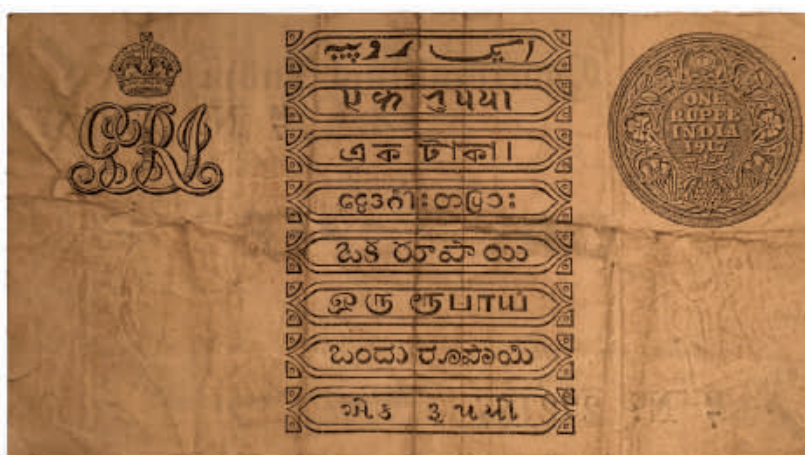 GRI
ایک روپیہ
𑂉𑂍 𑂩𑂳𑂣𑂨𑂰
এক টাকা
ငွေဒင်္ဂါးတပြား
ఒక రూపాయి
ஒரு ரூபாய்
ಒಂದು ರೂಪಾಯಿ
એક રૂપયો
ONE
RUPEE
INDIA
1917